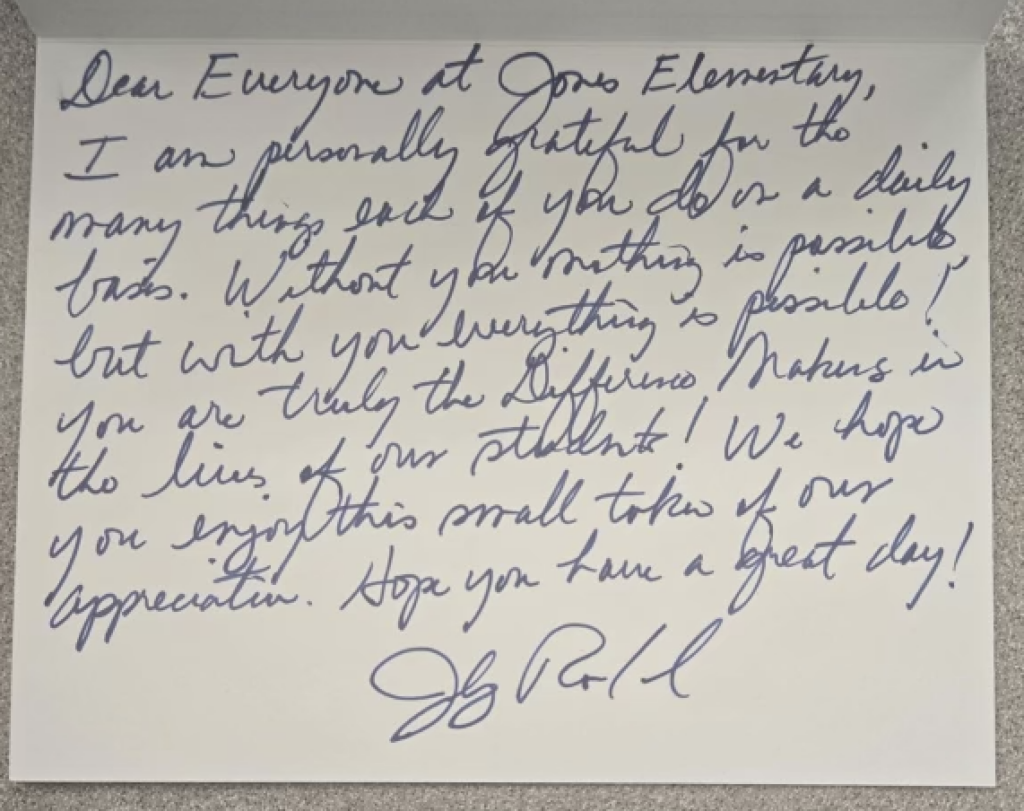 Dear Everyone at Jones Elementary,
I am personally grateful for the
many things each of you do on a daily
basis. Without you nothing is possible
but with you everything is possible!
you are truly the Difference Makers in
the lives of our students! We hope
you enjoy this small token of our
appreciation. Hope you have a great day!